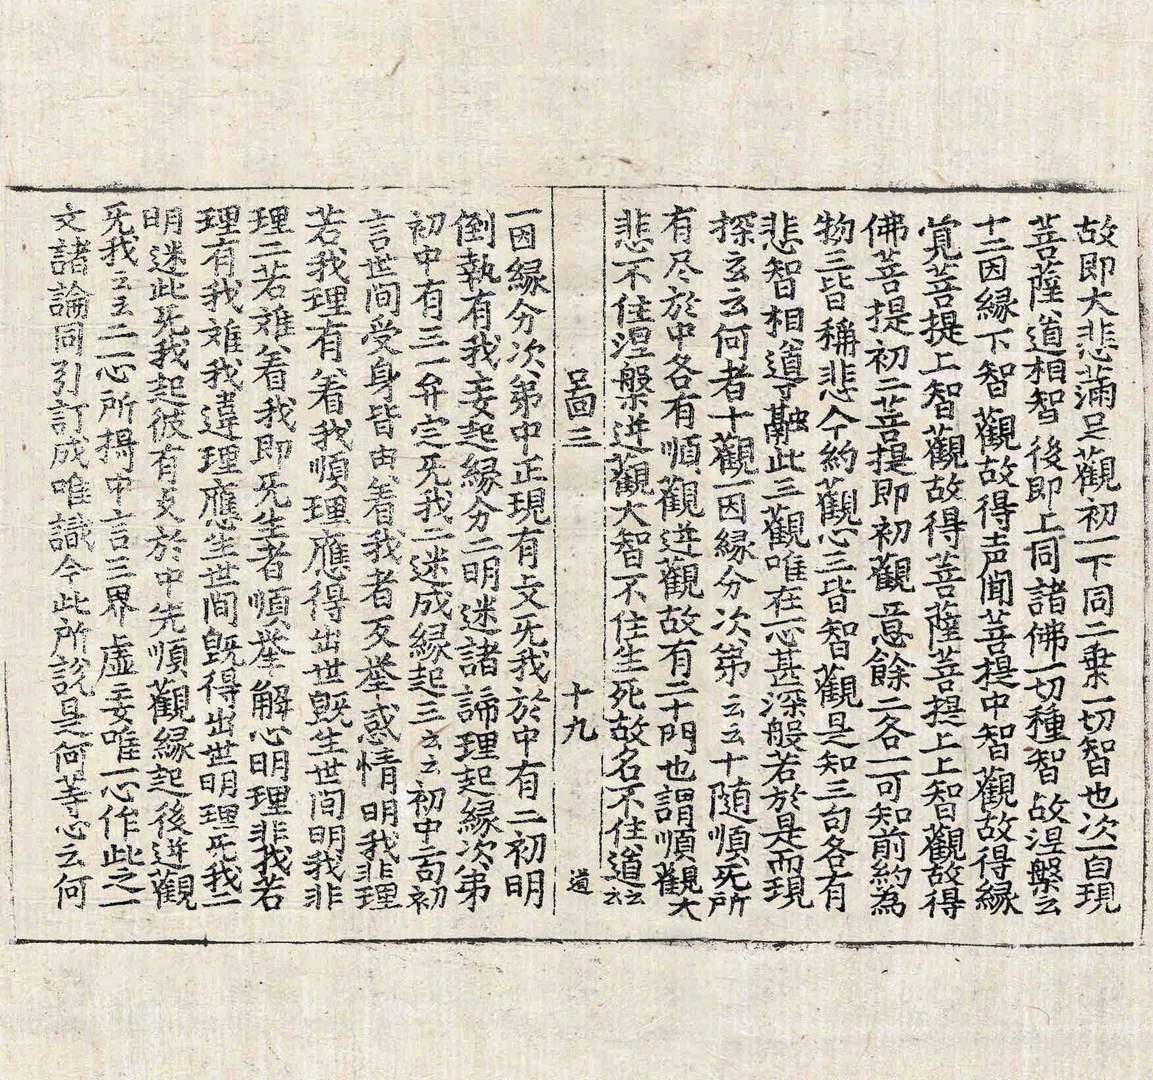 故即大悲滿足觀初一下同二乗一切智也次一自現
菩薩道相智後即上同諸佛一切種智故涅槃云
十二因縁下智觀故得声聞菩提中智觀故得縁
覚菩提上智觀故得菩薩菩提上上智觀故得
佛菩提初二菩提即初觀意餘二各一可知前約為
物三皆稱悲今約觀心三皆智觀是知三句各有
悲智相導了融此三觀唯在一心甚深般若於是而現
探玄云何者十觀一因縁分次第云云十随順无所
有尽於中各有順觀逆觀故有二十門也謂順觀大
悲不住涅槃逆觀大智不住生死故名不住道云云
圖三 十九 道
一因縁分次第中正現有支无我於中有二初明
倒執有我妄起縁分二明迷諸諦理起縁次第
初中有三一弁定无我二迷成縁起三云云初中二句初
言世間受身皆由著我者反挙惑情明我非理
若我理有著我順理應得出世既生世間明我非
理二若離著我即无生者順挙解心明理非我若
理有我難我違理應生世間既得出世明理无我二
明迷此无我起彼有支於中先順觀縁起後逆觀
无我云云二一心所摂中言三界虚妄唯一心作此之一
文諸論同引訂成唯識今此所說是何等心云何